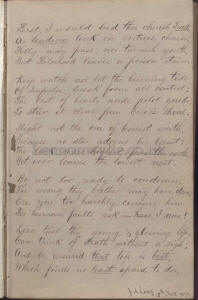 First, I would bid thee cherish Truth
As leading link in virtue's chain;
Folly may pass, nor tarnish youth,
But Falsehood leaves a poison stain.
Keep watch nor let the burning tide
Of Impulse, break from all control;
The best of hearts needs pilot guide,
To steer it clear from Error's shoal.
Slight not the one of honest worth,
Because no star adorns his breast;
The
Yet ever leaves the lowest nest.
Be not too ready to condemn,
The wrong thy brother may have done;
Ere you too harshly censure him
For human faults, ask — Have I none?
Live that thy young & glowing life,
Can think of death without a sigh;
And be assured that life is best,
Which finds us least afraid to die.